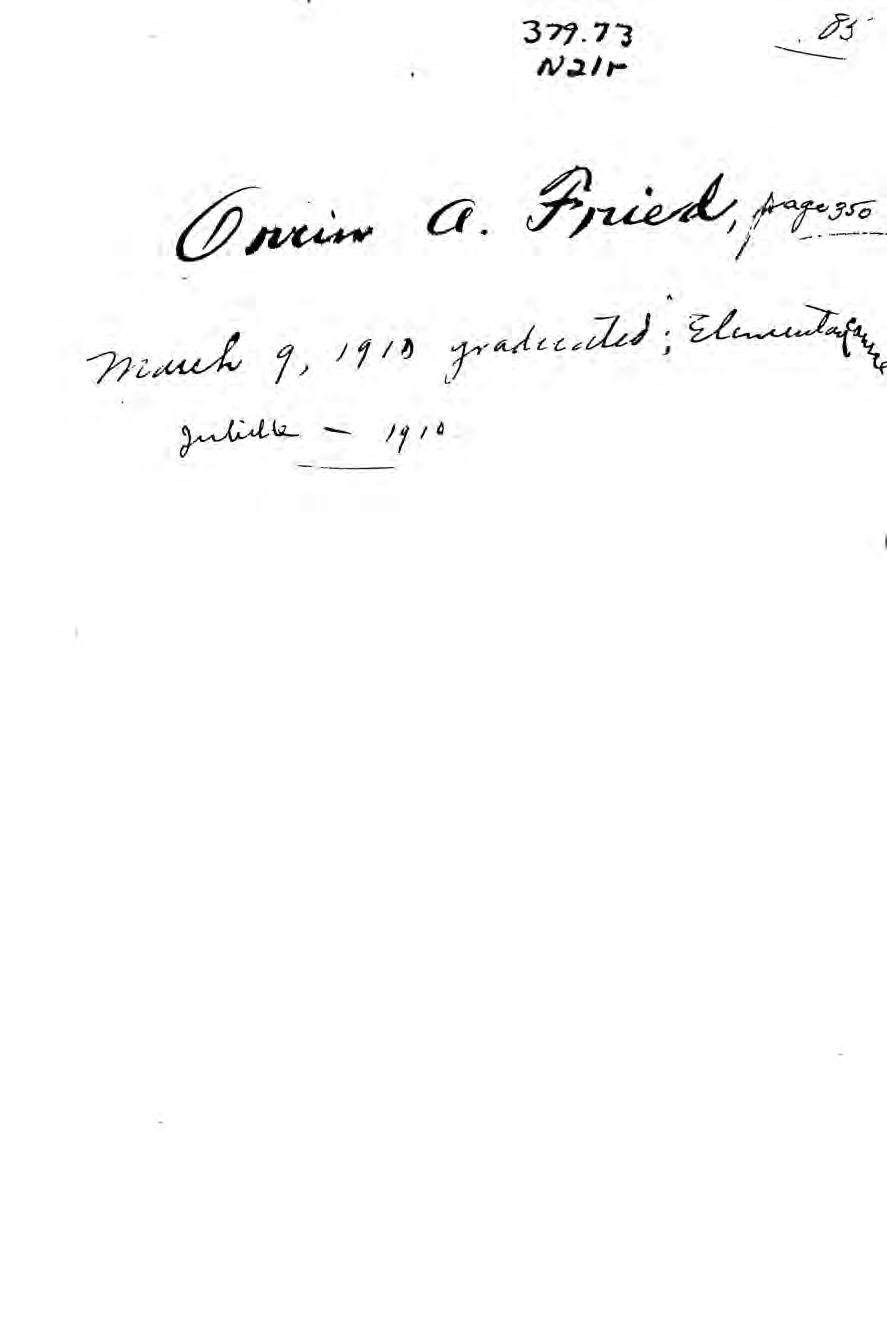 379.73 85
N21r
Orrin A. Fried, page 350
March 9, 1910 graduated; Elementary course
1910